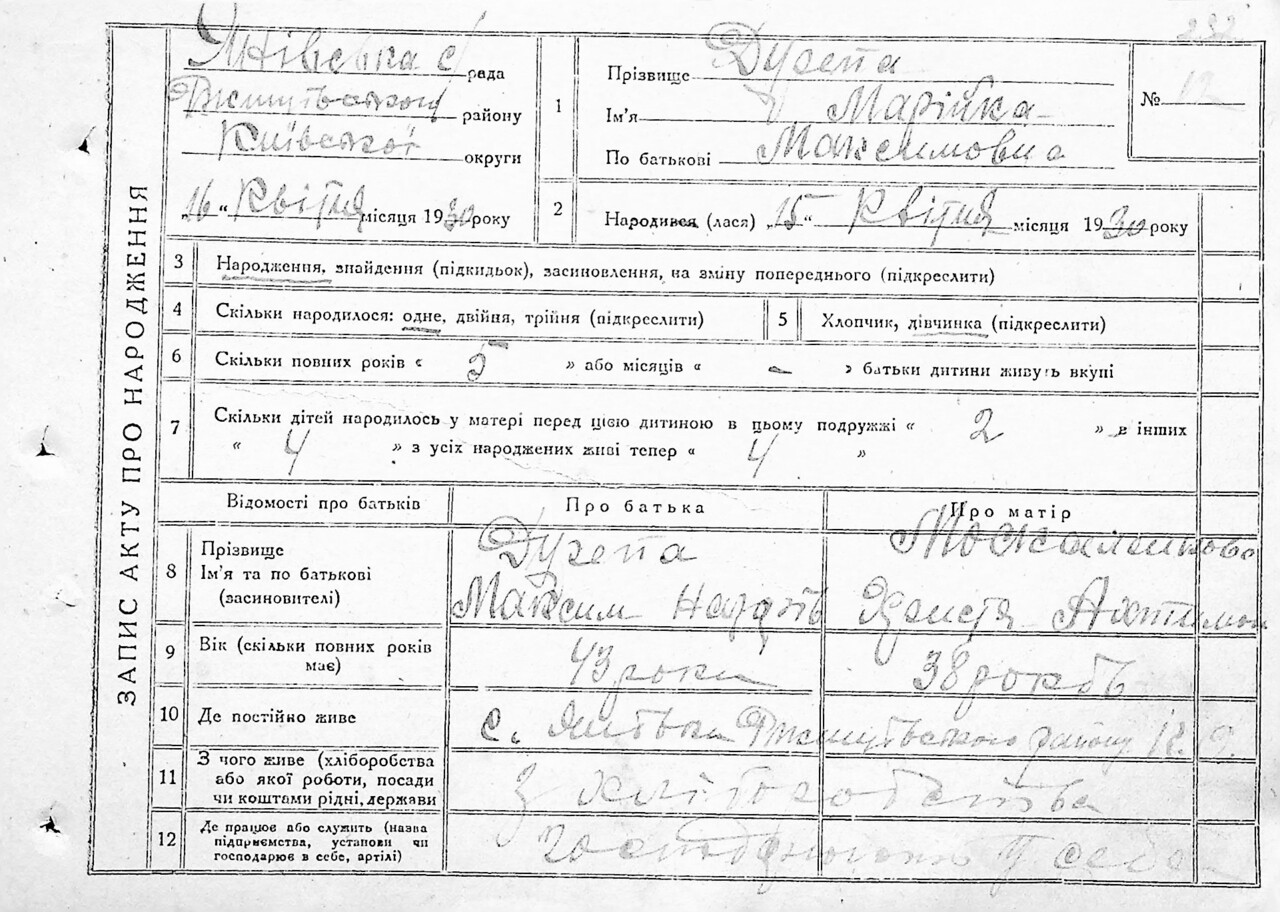 232
ЗАПИС АКТУ ПРО НАРОДЖЕННЯ
рада
району
Київської округи
„16“ Квітня місяця 1930 року
1
Прізвище Дузепа
Ім'я Марійка
По батькові Максимовна
№ 12
2
Народився (лася) „15“ Квітня місяця 1930 року
3
Народження, знайдення (підкидьок), засиновлення, на зміну попереднього (підкреслити)
4
Скільки народилося: одне, двійня, трійня (підкреслити)
5
Хлопчик, дівчинка (підкреслити)
6
Скільки повних років « 5 » або місяців « – » батьки дитини живуть вкупі
7
Скільки дітей народилось у матері перед цією дитиною в цьому подружжі « 2 » в інших
« 4 » з усіх народжених живі тепер « 4 »
Відомості про батьків
Про батька
Про матір
8
Прізвище
Ім'я та по батькові
(засиновителі)
Дузепа
Максим
9
Вік (скільки повних років
має)
43 роки
38 рокбъ
10
Де постійно живе
с. району
11
З чого живе (хліборобства
або якої роботи, посади
чи коштами рідні, держави
З хліборобства
12
Де працює або служить (назва
підприємства, установи чи
господарює в себе, артілі)
у себе